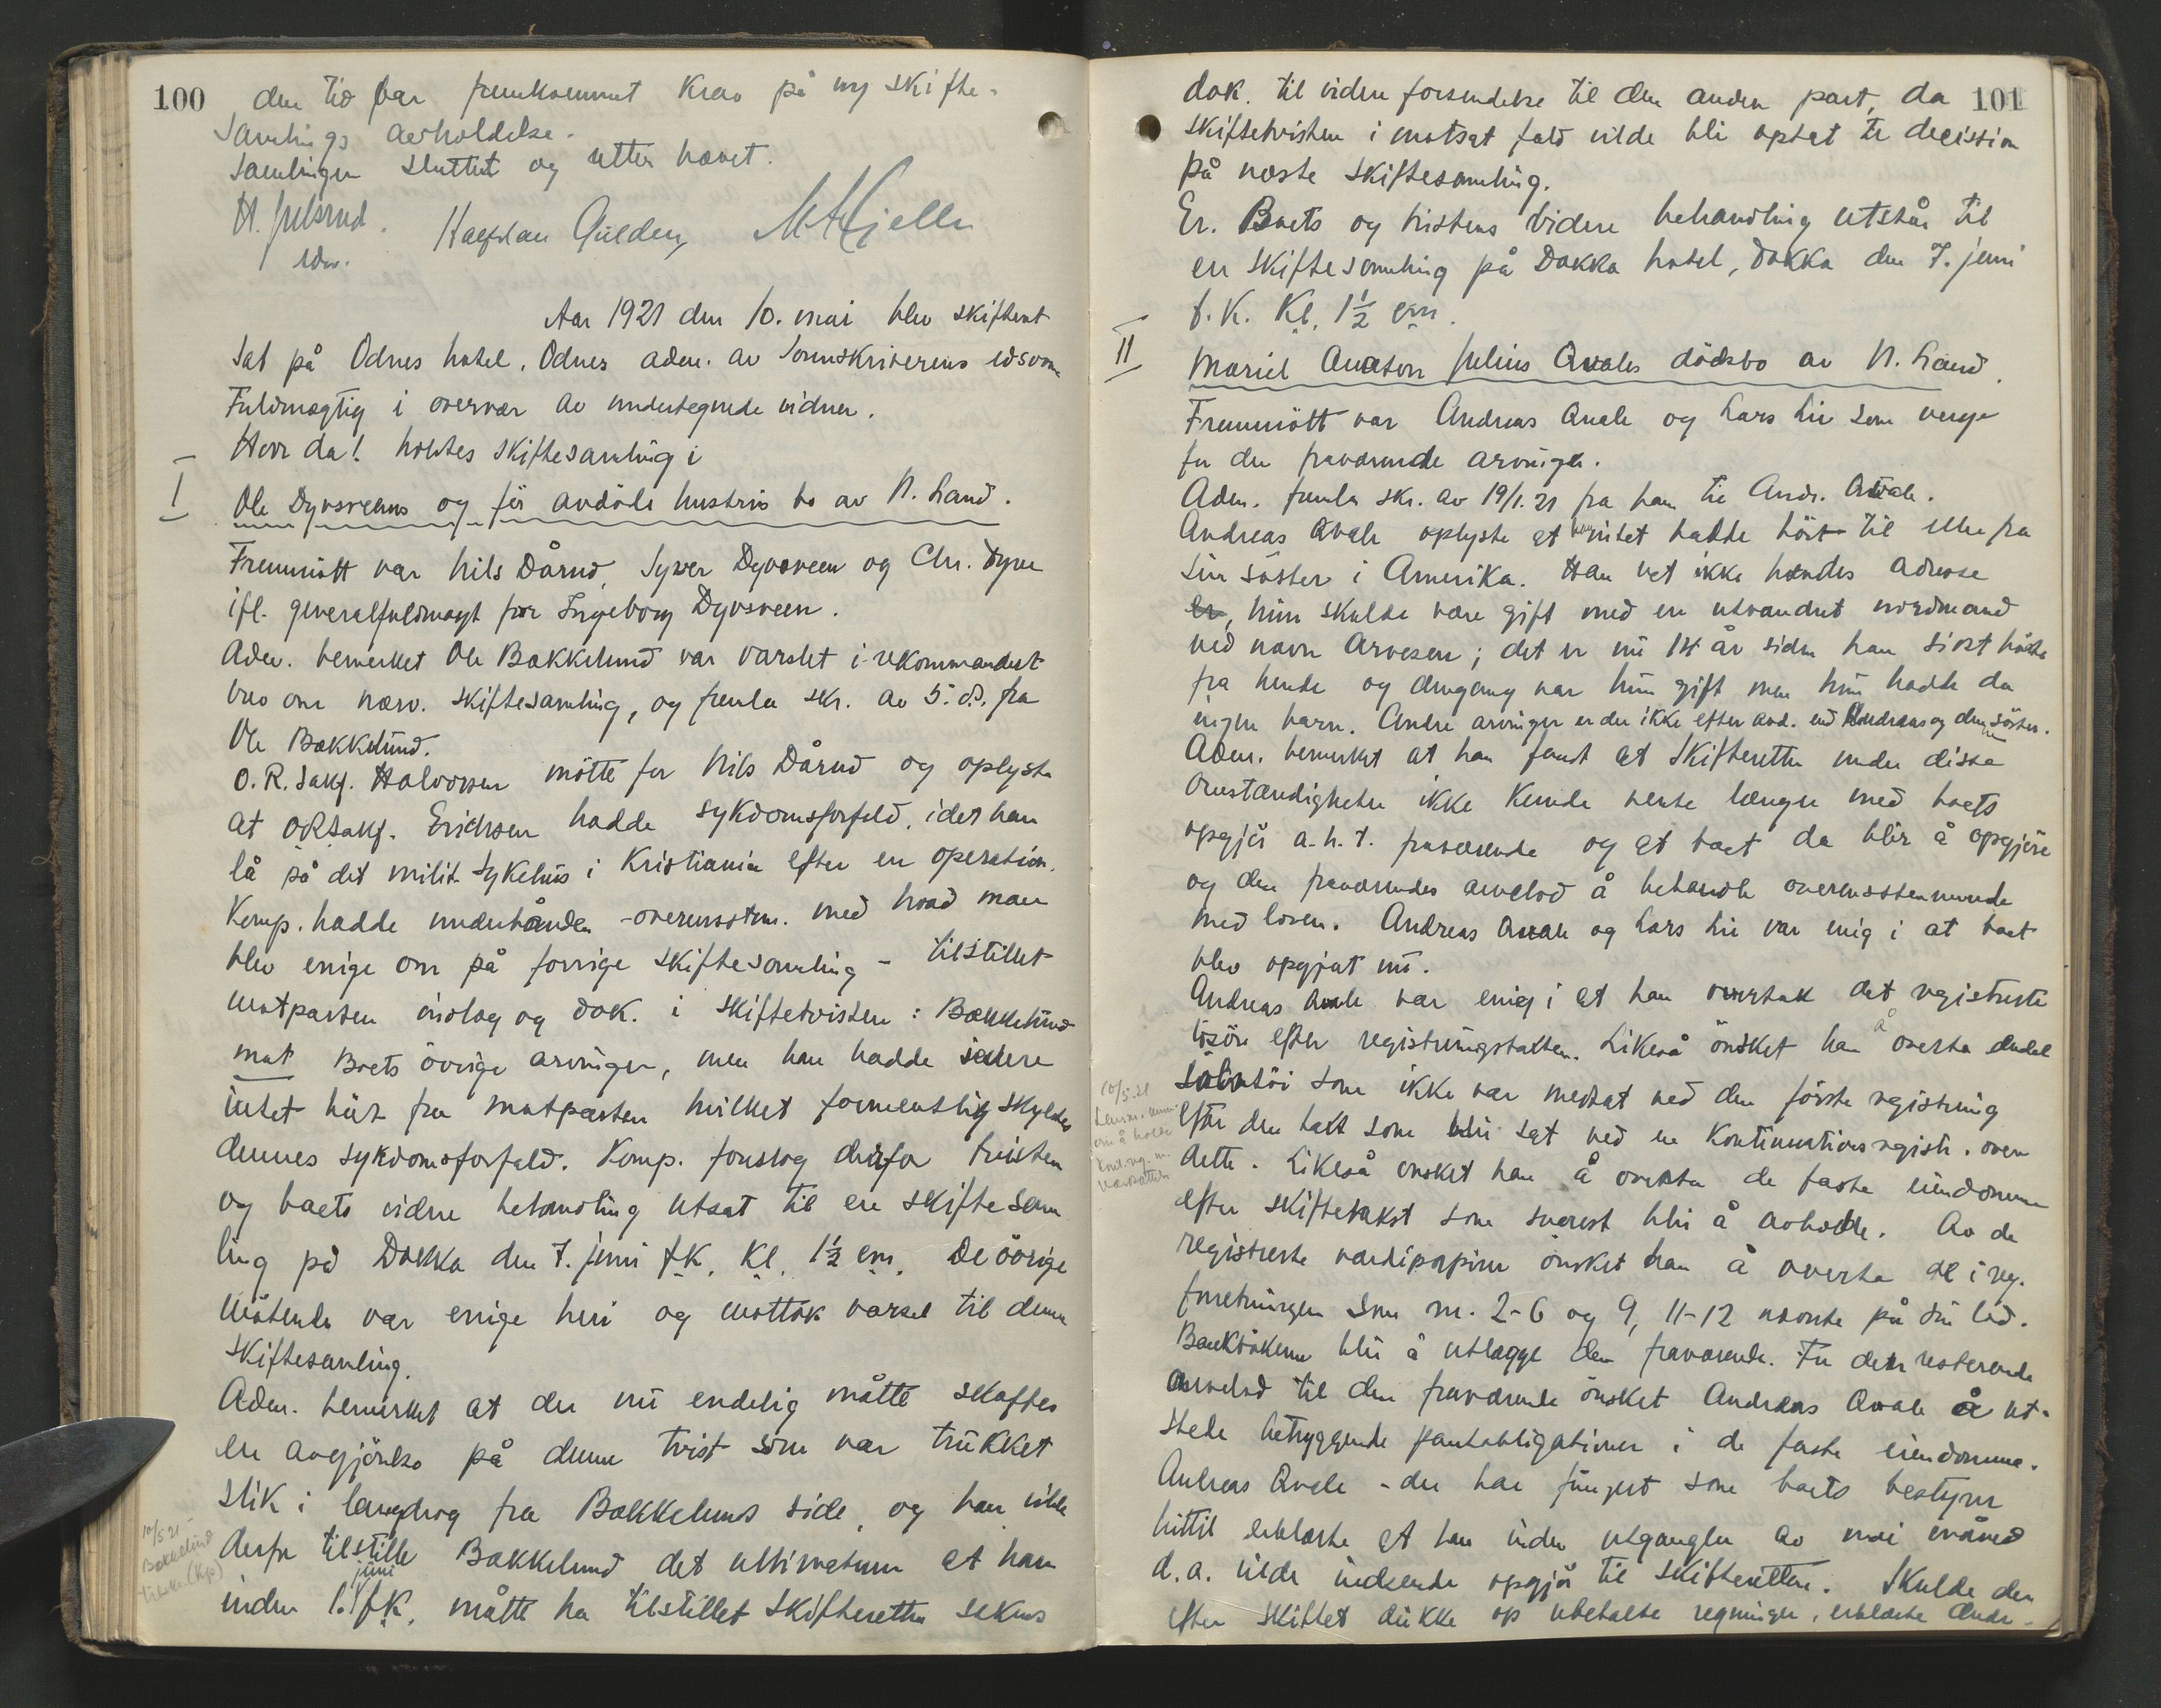 100
den tid har fremkommet krav på ny skifte-
samlings avholdelse.
Samlingen sluttet og retten hævet.
H. Julsrud. Halfdan Gulden M. Hjelle
edsv.
Aar 1921 den 10. mai blev skifteret
sat på Odnes hotel, Odnes adm. av Sorenskriverens edsvorne
Fuldmægtig i overvær av undertegnede vidner.
Hvor da! holdtes skiftesamling i
I
Ole Dyvsveens og før avdøde hustrus bo av N. Land.
Fremmøtt var Nils Dårud, Syver Dyvsveen og Chr. Dyve
ifl. generalfuldmagt for Ingeborg Dyvsveen.
Adm. bemerket Ole Bakkelund var varslet i rekommandert
brev om nærv. skiftesamling, og fremla skr. av 5. ds. fra
Ole Bakkelund.
O.R. sakf. Halvorsen møtte for Nils Dårud og oplyste
at ORsakf. Erichsen hadde sykdomsforfald, idet han
lå på det milit. sykehus i Kristiania efter en operation.
Komp. hadde underhånden - overensstem. med hvad man
blev enige om på forrige skiftesamling - tilstillet
motparten indlæg og dok. i skiftetvisten: Bakkelund
mot Boets øvrige arvinger, men han hadde senere
intet hørt fra motparten hvilket formentlig skyldes
dennes sykdomsforfald. Komp. forslog derfor tvisten
og boets videre behandling utsat til en skiftesam
ling på Dokka den 7. juni f.k. kl. 1½ em. De øvrige
møtende var enige heri og mottok varsel til denne
skiftesamling.
Adm. bemerket at der nu endelig måtte skaffes
en avgjørelse på denne tvist som var trukket
slik i langdrag fra Bakkelunds side, og han vilde
derfor tilstille Bakkelund det ultimatum at han
juni
inden 1. f.k. måtte ha tilstillet skifteretten sakens
10/5 21 -
Bakkelund
tilskr. (Kp)
101
dok. til videre forsendelse til den anden part, da
skiftetvisten i motsat fald vilde bli optat til decision
på næste skiftesamling.
Er. Boets og tvistens videre behandling utstår til
en skiftesamling på Dokka hotel, Dokka den 7. juni
f.k. Kl. 1½ em.
II
Mariel Anton Julius Qvales dödsbo av N. Land.
Fremmött var Andreas Qvale og Lars Lie som verge
for den fraværende arving.
Adm. fremla skr. av 19/1. 21 fra ham til Andr. Qvale.
Andreas Qvale oplyste at han intet hadde hört til eller fra
sin søster i Amerika. Han vet ikke hendes adresse
er, hun skulde være gift med en utvandret nordmand
ved navn Arvesen; det er nu 14 år siden han sidst hørte
fra hende og dengang var hun gift men hun hadde da
ingen barn. Andre arvinger er der ikke efter avd. end Andreas og denne søster.
Adm. bemerket at han fandt at skifteretten under disse
omstændigheter ikke kunde vente længer med boets
opgjør a.h.t. fraværende og at boet da blir å opgjøre
og den fraværendes arvelod å behandle overensstemmende
med loven. Andreas Qvale og Lars Lie var enig i at boet
blev opgjort nu.
Andreas Qvale var enig i at han overtok det registrerte
løsøre efter registreringstaksten. Likeså ønsket han å overta endel
som ikke var medtat ved den første registrering
efter den takst som blir sat ved en kontinuationsregistr. over
dette. Likeså ønsket han å overta de faste eiendomme
efter skiftetakst som snarest blir å avholde. Av de
registrerte værdipapirer ønsket han å overta de i reg.
forretningen som nr. 2-6 og 9, 11-12 anførte på sin lod.
Bankbøkerne blir å utlægge den fraværende. For den resterende
arvelod til den fraværende ønsket Andreas Qvale å ut-
stede betryggende pantobligationer i de faste eiendomme.
Andreas Qvale - der har fungert som boets bestyrer
hittil erklærte at han inden utgangen av mai måned
d.a. vilde indsende opgjør til skifteretten. Skulde der
efter skiftet dukke op ubetalte regninger, erklærte Andr.
10/5.21
Lensm. anm.
om å holde
kont.reg. m.